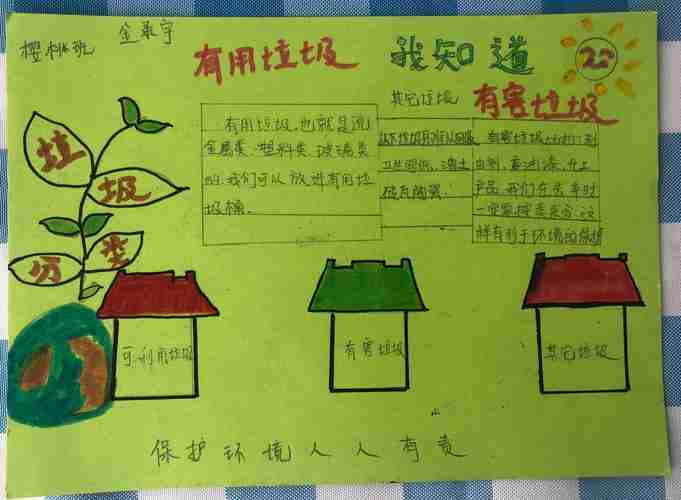 樱桃班
有用垃圾
我知道
其它垃圾
有害垃圾
垃
圾
分
类
有用垃圾,也就是说
金属类、塑料类、玻璃类
的,我们可以放进有用垃
圾桶。
卫生间纸、渣土
砖瓦陶瓷
有害垃圾
产品,我们在丢弃时
一定要按类丢弃,这
样有利于环境的保护
可利用垃圾
有害垃圾
其它垃圾
保护环境人人有责